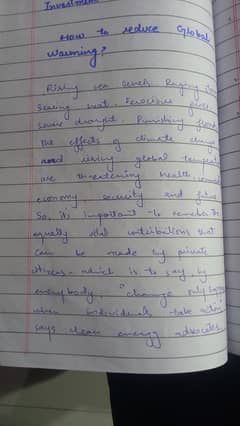 Investment
How to reduce Global
Warming?
Rising sea levels Raging
Searing heat. Ferocious fires
Severe drought. Punishing floods
the effects of climate change
and rising global temperatu
are threatening health,
economy, security and
So, it's important to remember the
equally vital contributions that
can be made by private
citizens - which is to say, by
everybody. "Change only happens
when individuals take action"
says clean energy advocate